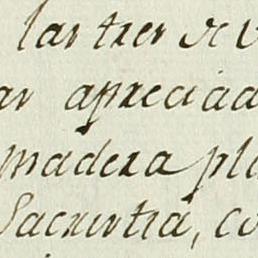 las tres de v
ar apreciad
madera pla
Sacristia, co